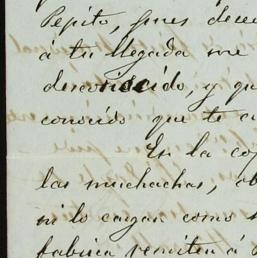 Pepito, pues dece
á tu llegada me
desconocido, y qu
conocido que te a
En la co
las muchachas, ob
ni lo cagan como s
fabrica remiten á